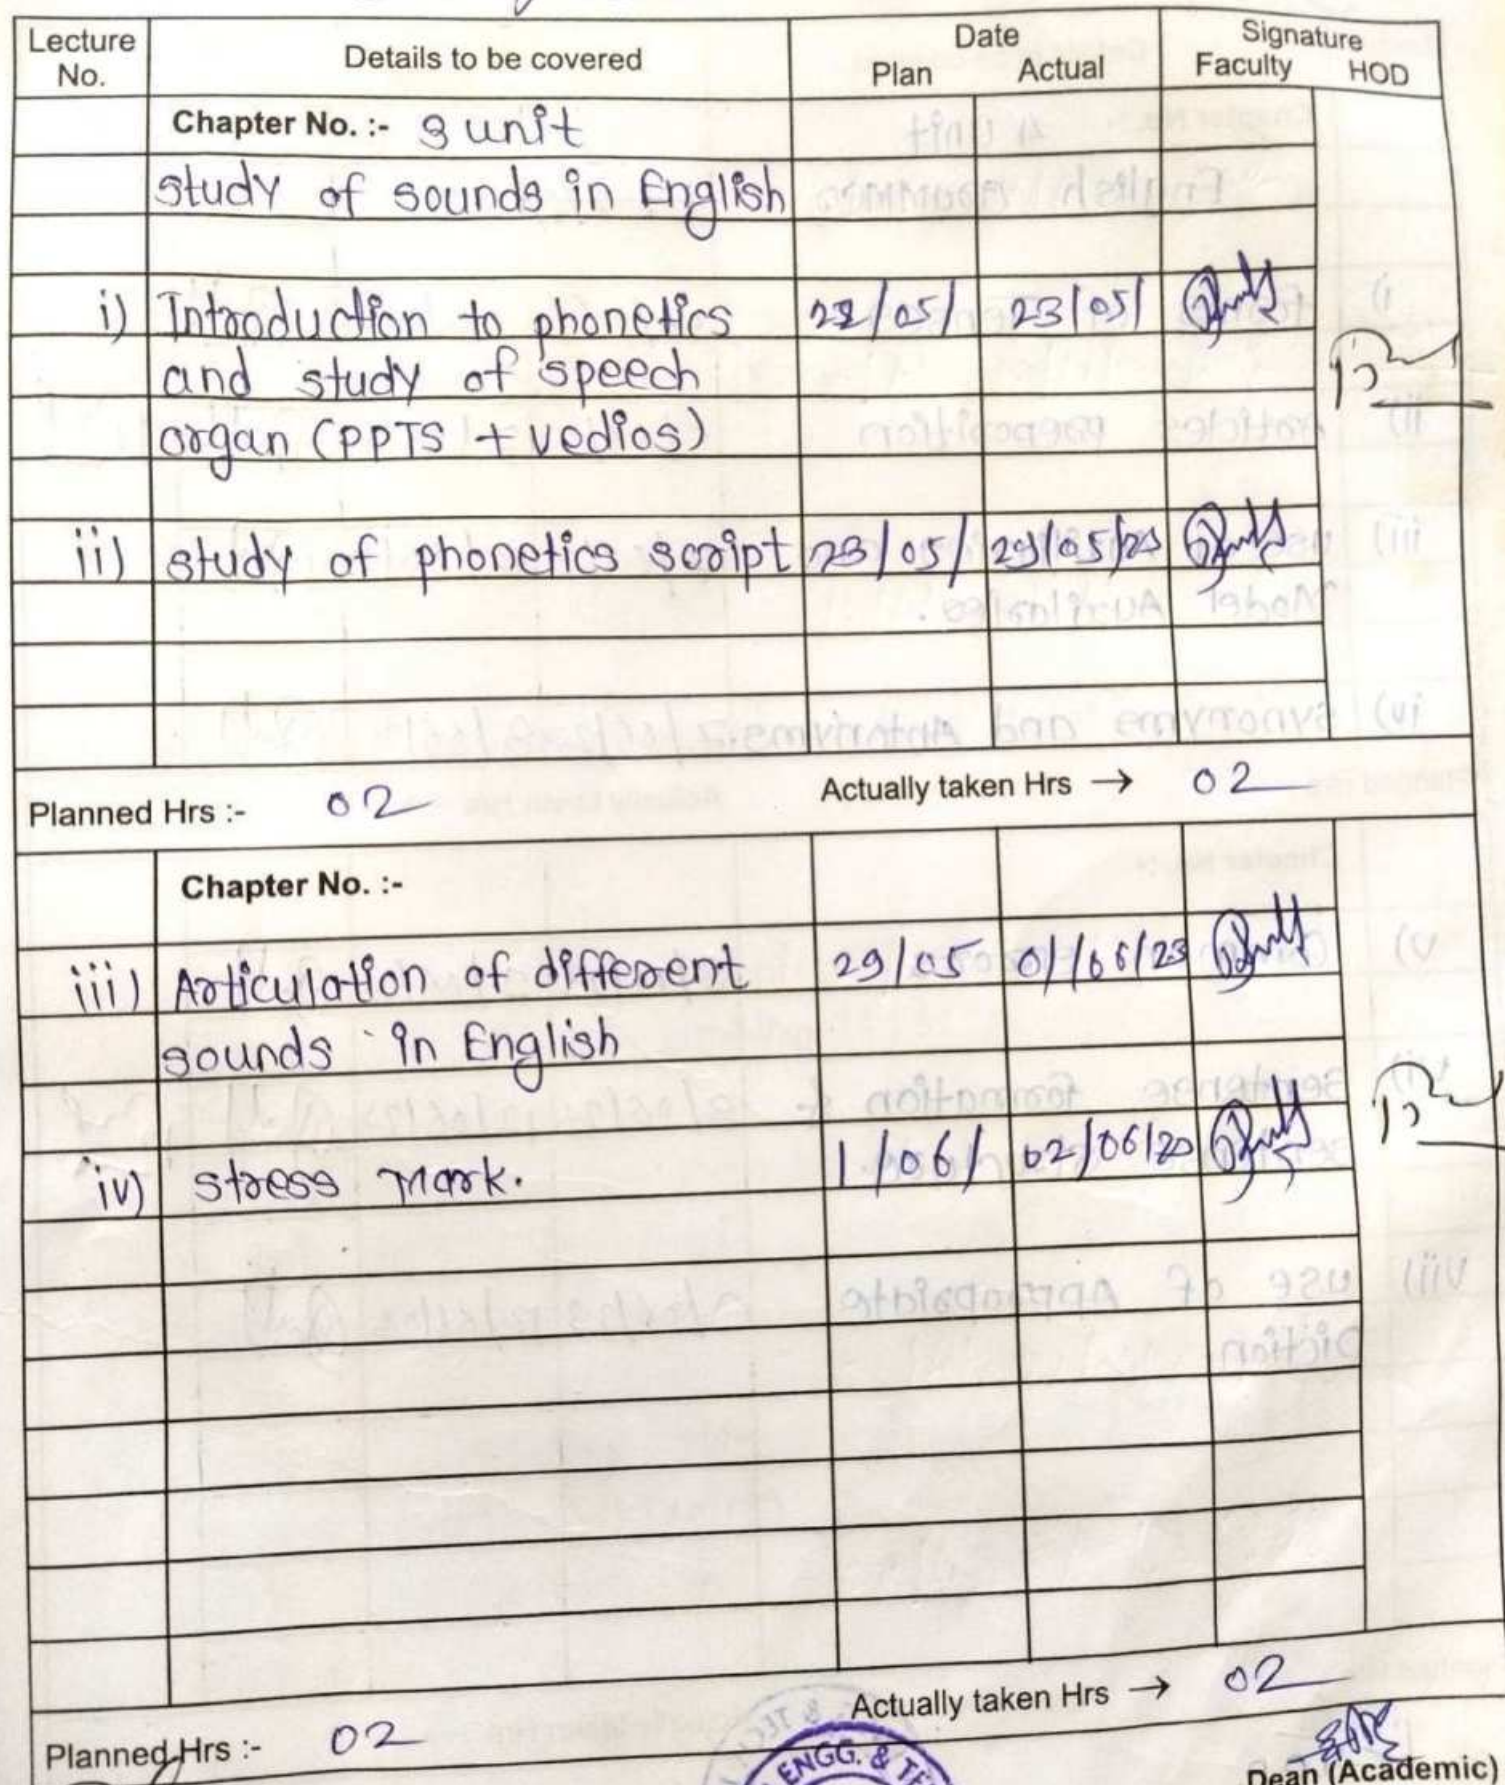 Lecture No. Details to be covered Date Plan Actual Signature Faculty HOD
Chapter No. :- 3 unit
study of sounds in English
i) Introduction to phonetics 22/05/ 23/05/
and study of speech
organ (PPTS + vedios)
ii) study of phonetics script 23/05/ 29/05/23
Planned Hrs :- 02 Actually taken Hrs → 02
Chapter No. :-
iii) Articulation of different 29/05 01/06/23
sounds in English
iv) stress mark. 1/06/ 02/06/23
Planned Hrs :- 02 Actually taken Hrs → 02
ENGG. &
Dean (Academic)